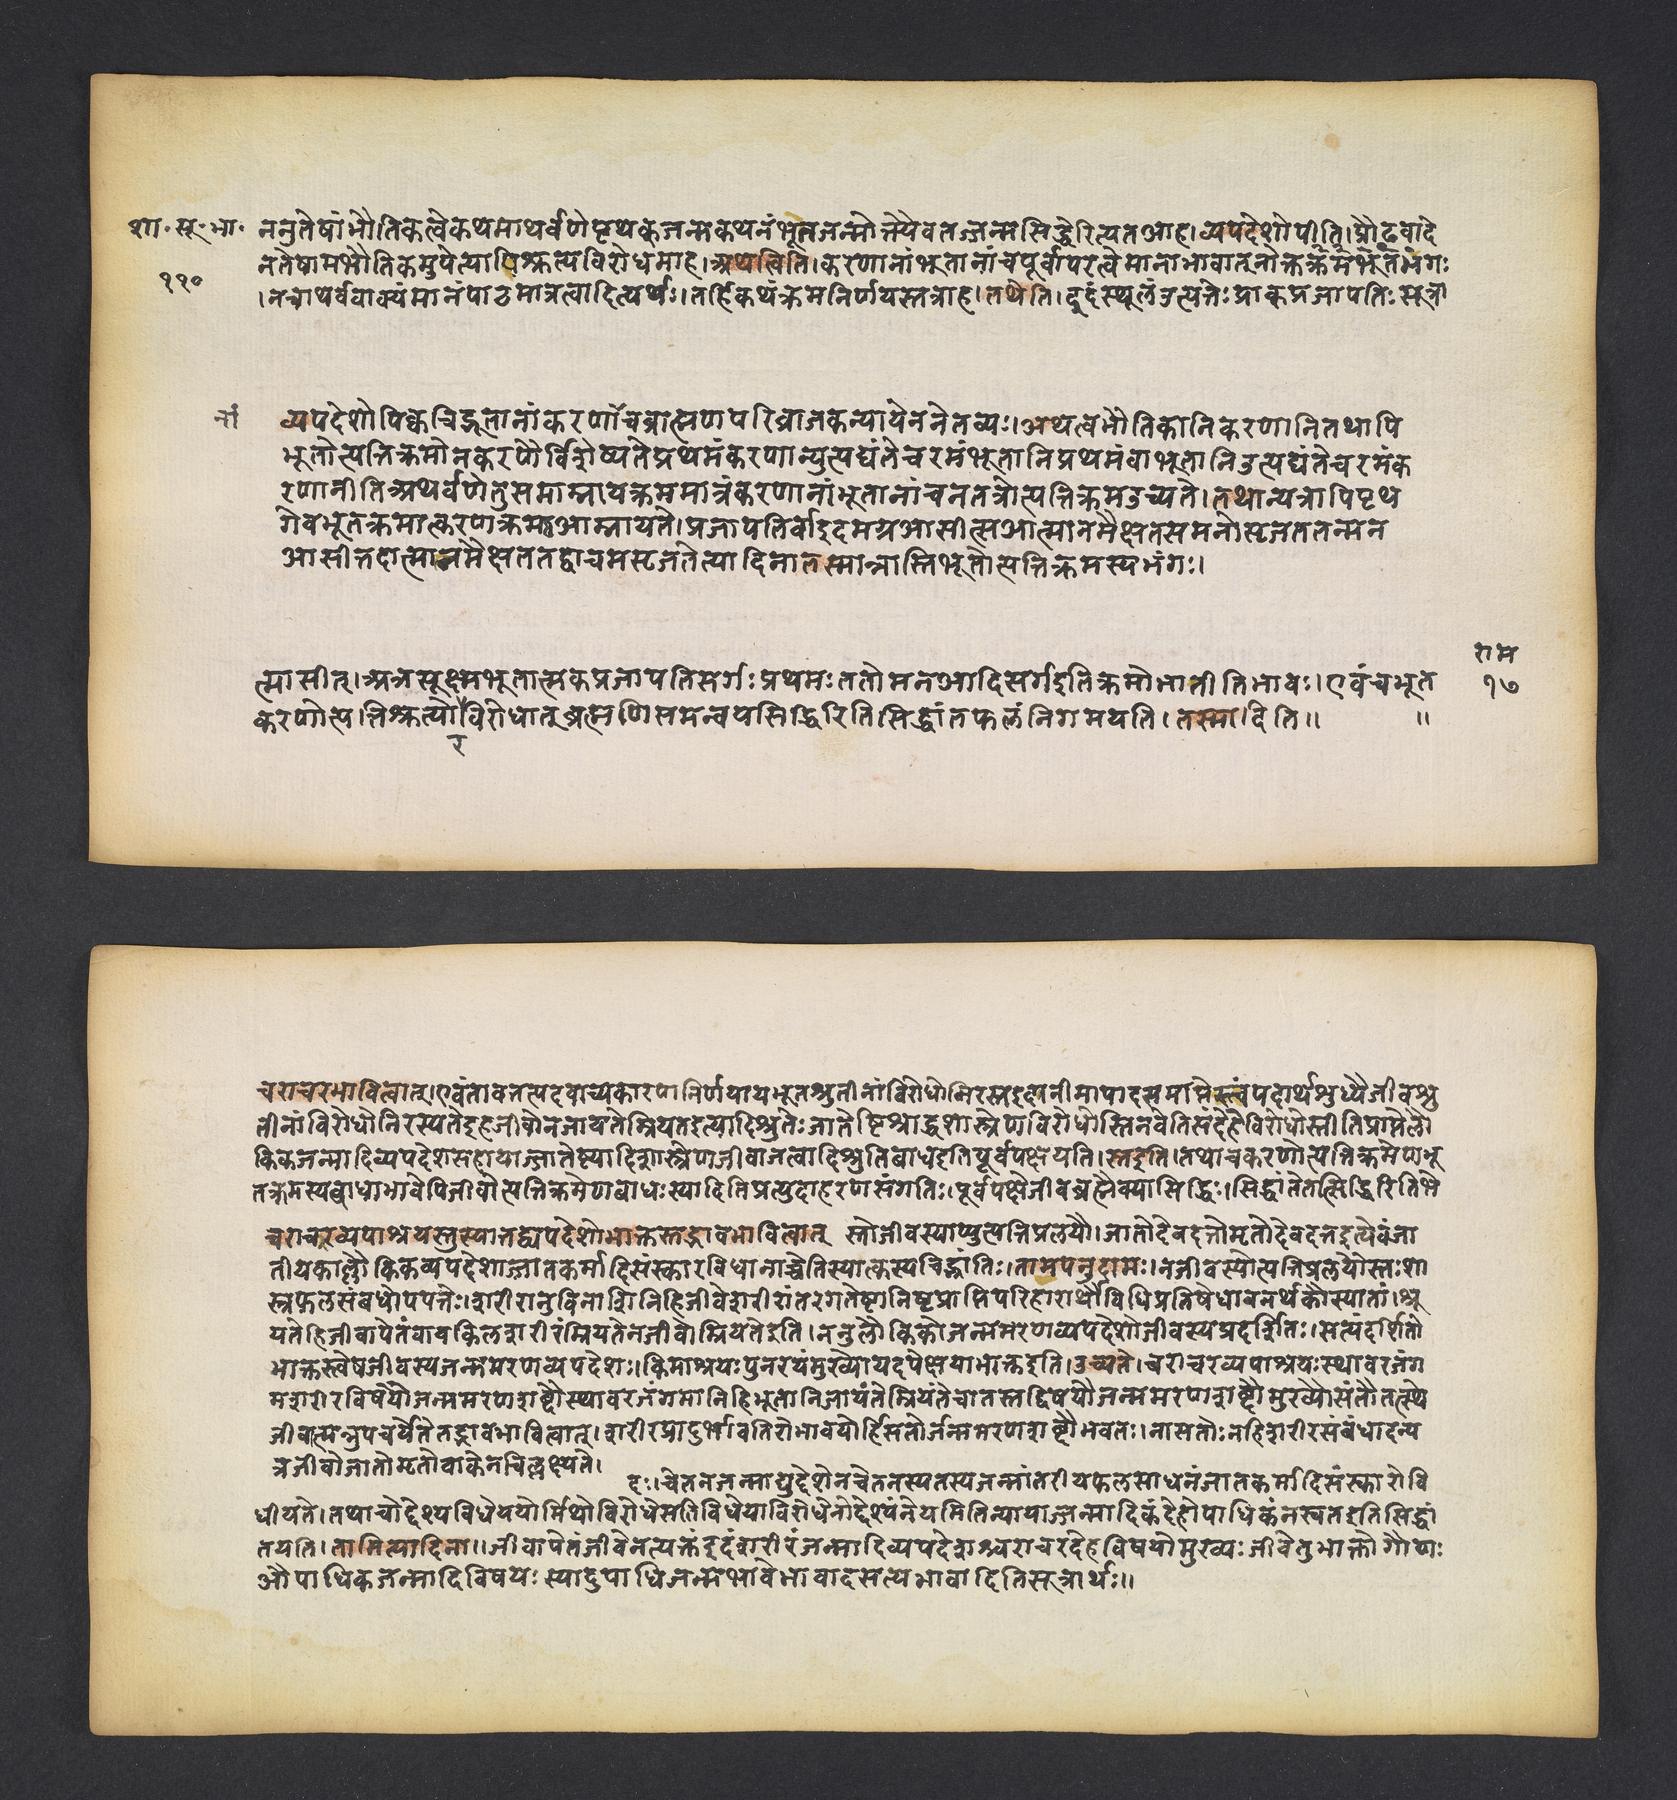 शा॰ सू॰ भा॰
११०
ननुतेषांभौतिकत्वेकथमाथर्वणेपृथक्जन्मकथनंभूतजन्मोत्त्यैवतज्जन्मसिद्धेरित्यतआह।व्यपदेशोपीति।प्रौढवादे
नतेषामभौतिकमुपेत्यापिश्रुत्यविरोधमाह।अथत्विति।करणानांभूतानांचपूर्वापरत्वेमानाभावात्नोक्तक्रमभूतभंगः
।नचाथर्ववाक्यंमानंपाठमात्रत्वादित्यर्थः।तर्हिकथंक्रमनिर्णयस्तत्राह।तथेति।इदंस्थूलंउत्पत्तेःप्राक्प्रजापतिःसूत्रा
नां
व्यपदेशोपिक्वचिद्भूतानांकरणाँचब्राह्मणपरिव्राजकन्यायेननेतव्यः।अथत्वभौतिकानिकरणानितथापि
भूतोत्पत्तिक्रमोनकरणैर्विशेष्यतेप्रथमंकरणान्युत्पद्यंतेचरमंभूतानिप्रथमंवाभूतानिउत्पद्यंतेचरमंक
रणानीतिअथर्वणेतुसमाम्नायक्रममात्रंकरणानांभूतानांचनतत्रोत्पत्तिक्रमउच्यते।तथान्यत्रापिपृथ
गेवभूतक्रमात्करणक्रमआम्नायते।प्रजापतिर्वाइदमग्रआसीत्सआत्मानमैक्षतसमनोसृजततन्मन
आसीत्तदात्मानमैक्षततद्वाचमसृजतेत्यादिनातस्मान्नास्तिभूतोत्पत्तिक्रमस्यभंगः।
राम
१७
त्मासीत्।अत्रसूक्ष्मभूतात्मकप्रजापतिसर्गःप्रथमःततोमनआदिसर्गइतिक्रमोभातीतिभावः।एवंचभूत
करणोत्प।त्तिश्रुत्योविरोधात्ब्रह्मणिसमन्वयसिद्धिरितिसिद्धांतफलंनिगमयति।तस्मादिति॥ ॥
र
चराचरभावित्वात्।एवंतावत्तत्पदवाच्यकारणनिर्णयायभूतश्रुतीनांविरोधोनिरस्तइदानीमापादसमाप्तेस्त्वंपदार्थशुध्यैजीवश्रु
तीनांविरोधोनिरस्यतेइहजीवोनजायतेम्रियतइत्यादिश्रुतेःजातेष्टिश्राद्धशास्त्रेणविरोधोस्तिनवेतिसंदेहेविरोधोस्तीतिप्राप्तेलौ
किकजन्मादिव्यपदेशसहायाज्जातेष्ट्यादिशास्त्रेणजीवाजत्वादिश्रुतिबाधइतिपूर्वपक्षयति।स्तइति।तथाचकरणोत्पत्तिक्रमेणभू
तक्रमस्यबाधाभावेपिजीवोत्पत्तिक्रमेणबाधःस्यादितिप्रत्युदाहरणसंगतिः।पूर्वपक्षेजीवब्रह्मैक्यासिद्धिः।सिद्धांतेतत्सिद्धिरितिभे
चराचरव्यपाश्रयस्तुस्यात्तद्व्यपदेशोभाक्तस्तद्भावभावित्वात् स्तोजीवस्याप्युत्पत्तिप्रलयौ।जातोदेवदत्तोमृतोदेवदत्तइत्येवंजा
तीयकाल्लौकिकव्यपदेशाज्जातकर्मादिसंस्कारविधानाच्चेतिस्यात्कस्यचिद्भ्रांतिः।तामपनुदामः।नजीवस्योत्पत्तिप्रलयौस्तःशा
स्त्रफलसंबंधोपपत्तेः।शरीरानुविनाशिनिहिजीवेशरीरांतरगतेष्टानिष्टप्राप्तिपरिहारार्थौविधिप्रतिषेधावनर्थकौस्यातां।श्रू
यतेहिजीवापेतंवावकिलशरीरंम्रियतेनजीवोम्रियतेइति।ननुलौकिकोजन्ममरणव्यपदेशोजीवस्यप्रदर्शितः।सत्यंदर्शितो
भाक्तस्त्वेषजीवस्यजन्ममरणव्यपदेशः।किमाश्रयःपुनरयंमुख्योयदपेक्षयाभाक्तइति।उच्यते।चराचरव्यपाश्रयःस्थावरजंग
मशरीरविषयौजन्ममरणशब्दौस्थावरजंगमानिहिभूतानिजायंतेम्रियंतेचातस्तद्विषयौजन्ममरणशब्दौमुख्यौसंतौतत्स्थे
जीवात्मन्युपचर्येतेतद्भावभावित्वात्।शरीरप्रादुर्भावतिरोभावयोर्हिसतोर्जन्ममरणशब्दौभवतः।नासतोःनहिशरीरसंबंधादन्य
त्रजीवोजातोमृतोवाकेनचिल्लक्ष्यते।
दः।चेतनजन्माद्युद्देशेनचेतनस्यतस्यजन्मांतरीयफलसाधनंजातकर्मादिसंस्कारोवि
धीयते।तथाचोद्देश्यविधेययोर्मिथोविरोधेसतिविधेयाविरोधेनोद्देश्यंनेयमितिन्यायाज्जन्मादिकंदेहोपाधिकंनस्वतइतिसिद्धां
तयति।तामित्यादिना॥जीवापेतंजीवेनत्यक्तंइदंशरीरंजन्मादिव्यपदेशश्चराचरदेहविषयोमुख्यःजीवेतुभाक्तोगौणः
औपाधिकजन्मादिविषयःस्यादुपाधिजन्मभावेभावादसत्यभावादितिसूत्रार्थः॥